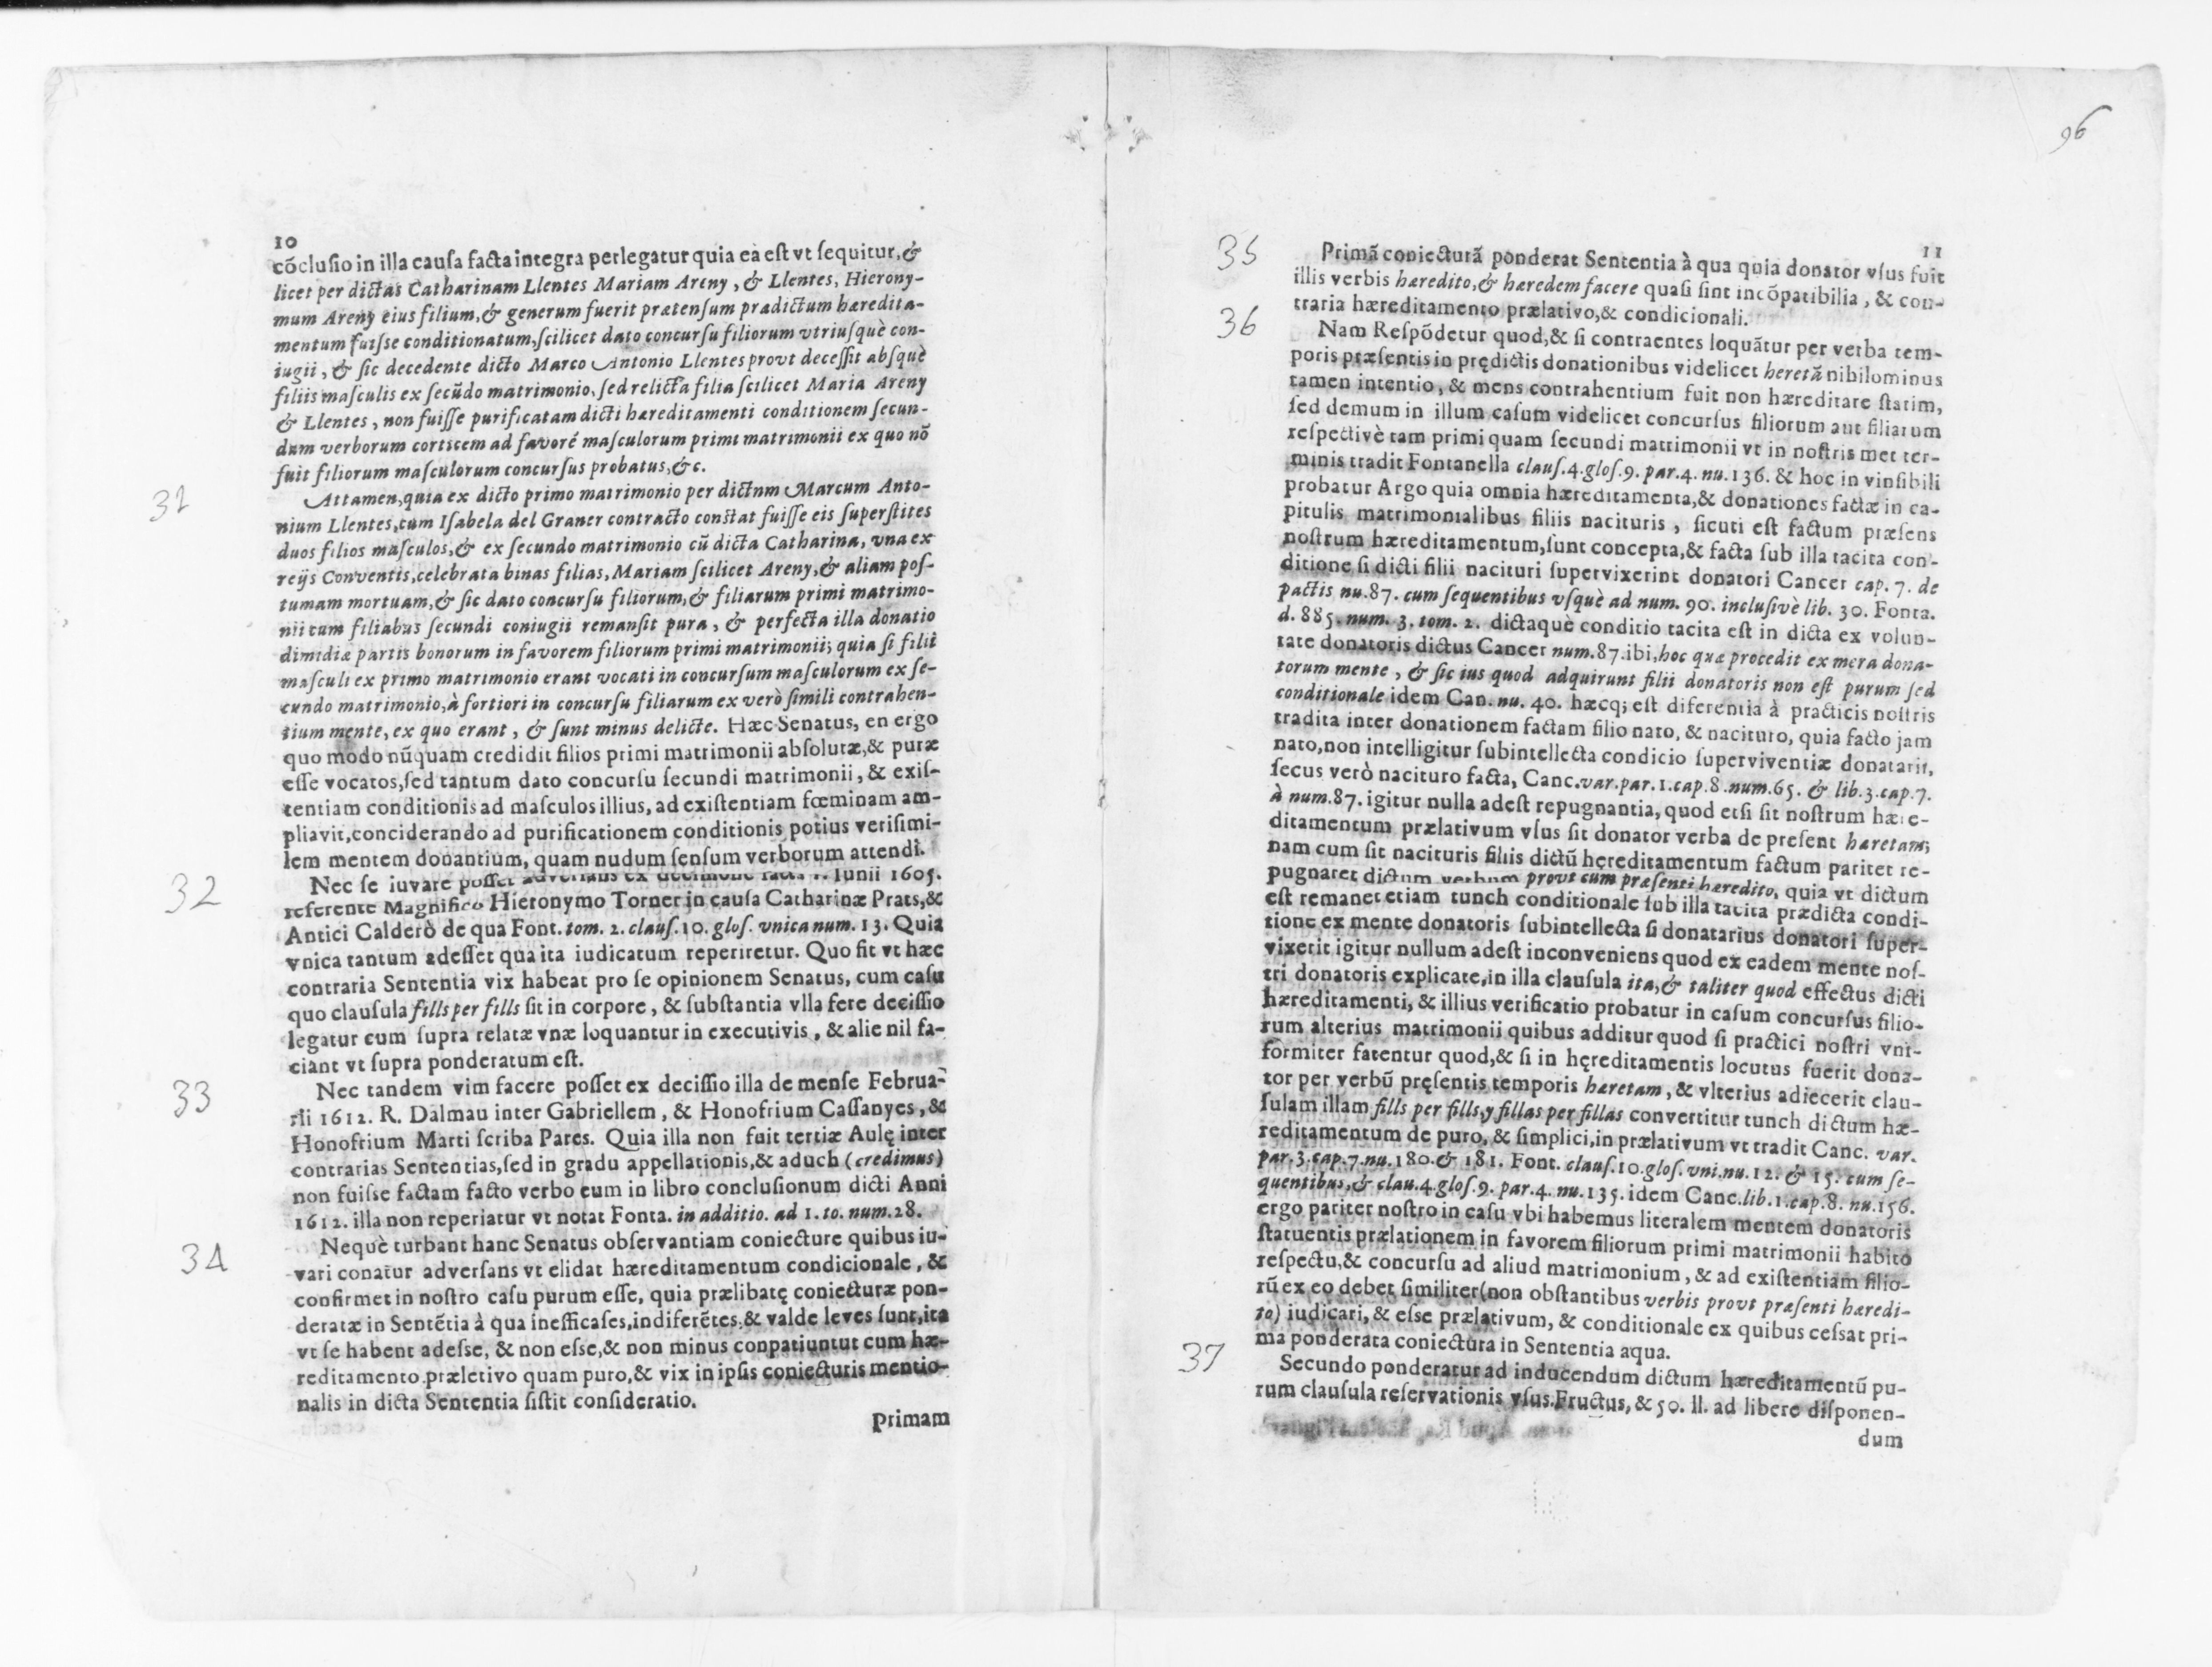 10
cõclusio in illa causa facta integra perlegatur quia ea est vt sequitur, &
licet per dictas Catharinam Llentes Mariam Areny, & Llentes, Hierony-
mum Areny eius filium, & generum fuerit prætensum prædictum hæredita-
mentum fuisse conditionatum, scilicet dato concursu filiorum vtriusquè con-
iugii, & sic decedente dicto Marco Antonio Llentes provt decessit absquè
filiis masculis ex secũdo matrimonio, sed relicta filia scilicet Maria Areny
& Llentes, non fuisse purificatam dicti hæreditamenti conditionem secun-
dum verborum corticem ad favoré masculorum primi matrimonii ex quo nõ
fuit filiorum masculorum concursus probatus, &c.
31
Attamen, quia ex dicto primo matrimonio per dictnm Marcum Anto-
nium Llentes, cum Isabela del Graner contracto constat fuisse eis superstites
duos filios masculos, & ex secundo matrimonio cũ dicta Catharina, vna ex
reijs Conventis, celebrata binas filias, Mariam scilicet Areny, & aliam pos-
tumam mortuam, & sic dato concursu filiorum, & filiarum primi matrimo-
nii cum filiabus secundi coniugii remansit pura, & perfecta illa donatio
dimidiæ partis bonorum in favorem filiorum primi matrimonii; quia si filii
masculi ex primo matrimonio erant vocati in concursum masculorum ex se-
cundo matrimonio, à fortiori in concursu filiarum ex verò simili contrahen-
tium mente, ex quo erant, & sunt minus delicte. Hæc Senatus, en ergo
quo modo nũquam credidit filios primi matrimonii absolutæ, & puræ
esse vocatos, sed tantum dato concursu secundi matrimonii, & exis-
tentiam conditionis ad masculos illius, ad existentiam fœminam am-
pliavit, conciderando ad purificationem conditionis potius verisimi-
lem mentem donantium, quam nudum sensum verborum attendi.
32
Nec se iuvare posset adversans ex decisione facta 1. Iunii 1605.
referente Magnifico Hieronymo Torner in causa Catharinæ Prats, &
Antici Calderò de qua Font. tom. 2. claus. 10. glos. vnica num. 13. Quia
vnica tantum adesset qua ita iudicatum reperiretur. Quo fit vt hæc
contraria Sententia vix habeat pro se opinionem Senatus, cum casu
quo clausula fills per fills sit in corpore, & substantia vlla fere decissio
legatur cum supra relatæ vnæ loquantur in executivis, & alie nil fa-
ciant vt supra ponderatum est.
33
Nec tandem vim facere posset ex decissio illa de mense Februa-
rii 1612. R. Dalmau inter Gabriellem, & Honofrium Cassanyes, &
Honofrium Marti scriba Pares. Quia illa non fuit tertiæ Aulę inter
contrarias Sententias, sed in gradu appellationis, & aduch (credimus)
non fuisse factam facto verbo cum in libro conclusionum dicti Anni
1612. illa non reperiatur vt notat Fonta. in additio. ad 1. to. num. 28.
34
Nequè turbant hanc Senatus observantiam coniecture quibus iu-
vari conatur adversans vt elidat hæreditamentum condicionale, &
confirmet in nostro casu purum esse, quia prælibatę coniecturæ pon-
deratæ in Sentẽtia à qua inefficases, indiferẽtes, & valde leves sunt, ita
vt se habent adesse, & non esse, & non minus conpatiuntut cum hæ-
reditamento præletivo quam puro, & vix in ipsis coniecturis mentio-
nalis in dicta Sententia sistit consideratio.
Primam
96
11
35
Primã coniecturã ponderat Sententia à qua quia donator vsus fuit
illis verbis hæredito, & hæredem facere quasi sint incõpatibilia, & con-
traria hæreditamento prælativo, & condicionali.
36
Nam Respõdetur quod, & si contraentes loquãtur per verba tem-
poris præsentis in prędictis donationibus videlicet heretã nibilominus
tamen intentio, & mens contrahentium fuit non hæreditare statim,
sed demum in illum casum videlicet concursus filiorum aut filiarum
respectivè tam primi quam secundi matrimonii vt in nostris met ter-
minis tradit Fontanella claus. 4. glos. 9. par. 4. nu. 136. & hoc in vinsibili
probatur Argo quia omnia hæreditamenta, & donationes factæ in ca-
pitulis matrimonialibus filiis nacituris, sicuti est factum præsens
nostrum hæreditamentum, sunt concepta, & facta sub illa tacita con-
ditione si dicti filii nacituri supervixerint donatori Cancer cap. 7. de
pactis nu. 87. cum sequentibus vsquè ad num. 90. inclusivè lib. 30. Fonta.
d. 885. num. 3. tom. 2. dictaquè conditio tacita est in dicta ex volun-
tate donatoris dictus Cancer num. 87. ibi, hoc quæ procedit ex mera dona-
torum mente, & sic ius quod adquirunt filii donatoris non est purum sed
conditionale idem Can. nu. 40. hæcq; est diferentia à practicis nostris
tradita inter donationem factam filio nato, & nacituro, quia facto jam
nato, non intelligitur subintellecta condicio superviventiæ donatarii,
secus verò nacituro facta, Canc. var. par. 1. cap. 8. num. 65. & lib. 3. cap. 7.
à num. 87. igitur nulla adest repugnantia, quod etsi sit nostrum hære-
ditamentum prælativum vsus sit donator verba de present hæretam;
nam cum sit nacituris filiis dictũ hęreditamentum factum pariter re-
pugnaret dictum verbum provt cum præsenti hæredito, quia vt dictum
est remanet etiam tunch conditionale sub illa tacita prædicta condi-
tione ex mente donatoris subintellecta si donatarius donatori super-
vixerit igitur nullum adest inconveniens quod ex eadem mente nos-
tri donatoris explicate, in illa clausula ita, & taliter quod effectus dicti
hæreditamenti, & illius verificatio probatur in casum concursus filio-
rum alterius matrimonii quibus additur quod si practici nostri vni-
formiter fatentur quod, & si in hęreditamentis locutus fuerit dona-
tor per verbũ pręsentis temporis hæretam, & vlterius adiecerit clau-
sulam illam fills per fills, y fillas per fillas convertitur tunch dictum hæ-
reditamentum de puro, & simplici, in prælativum vt tradit Canc. var.
par. 3. cap. 7. nu. 180. & 181. Font. claus. 10. glos. vni. nu. 12. & 15. cum se-
quentibus, & clau. 4. glos. 9. par. 4. nu. 135. idem Canc. lib. 1. cap. 8. nu. 156.
ergo pariter nostro in casu vbi habemus literalem mentem donatoris
statuentis prælationem in favorem filiorum primi matrimonii habito
respectu, & concursu ad aliud matrimonium, & ad existentiam filio-
rũ ex eo debet similiter (non obstantibus verbis provt præsenti hæredi-
to) iudicari, & esse prælativum, & conditionale ex quibus cessat pri-
ma ponderata coniectura in Sententia aqua.
37
Secundo ponderatur ad inducendum dictum hæreditamentũ pu-
rum clausula reservationis vsus Fructus, & 50. ll. ad libere disponen-
dum